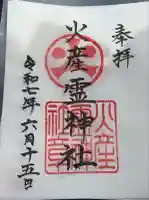 奉拝
火産霊神社
令和七年六月十五日
火産